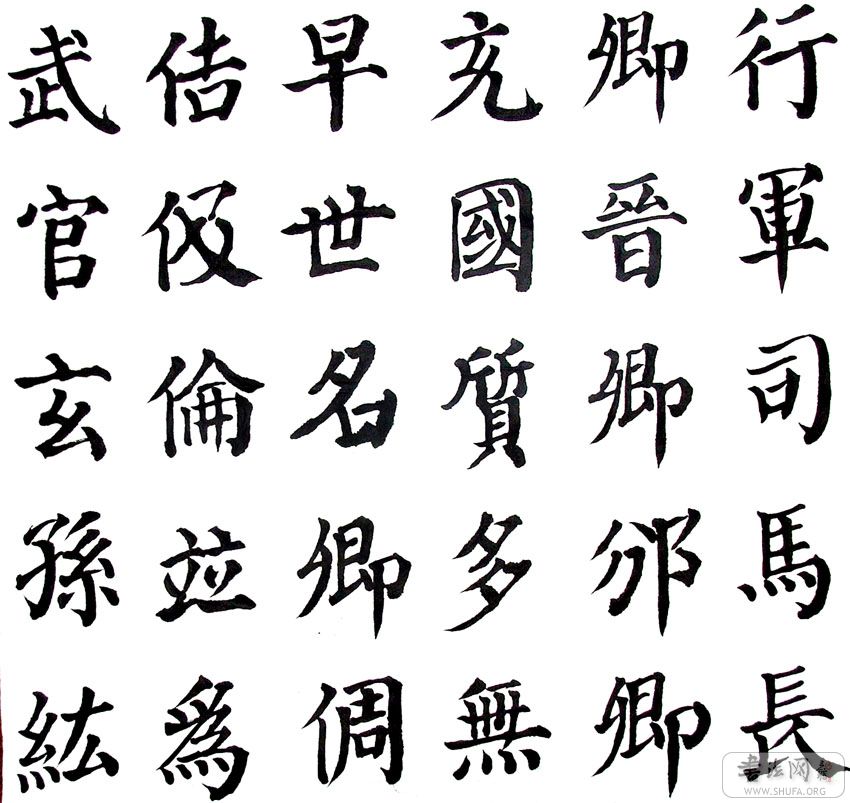 行軍司馬長
卿晉卿邠卿
充國質多無
早世名卿倜
佶伋倫並爲
武官玄孫紘
书法网
WWW.SHUFA.ORG